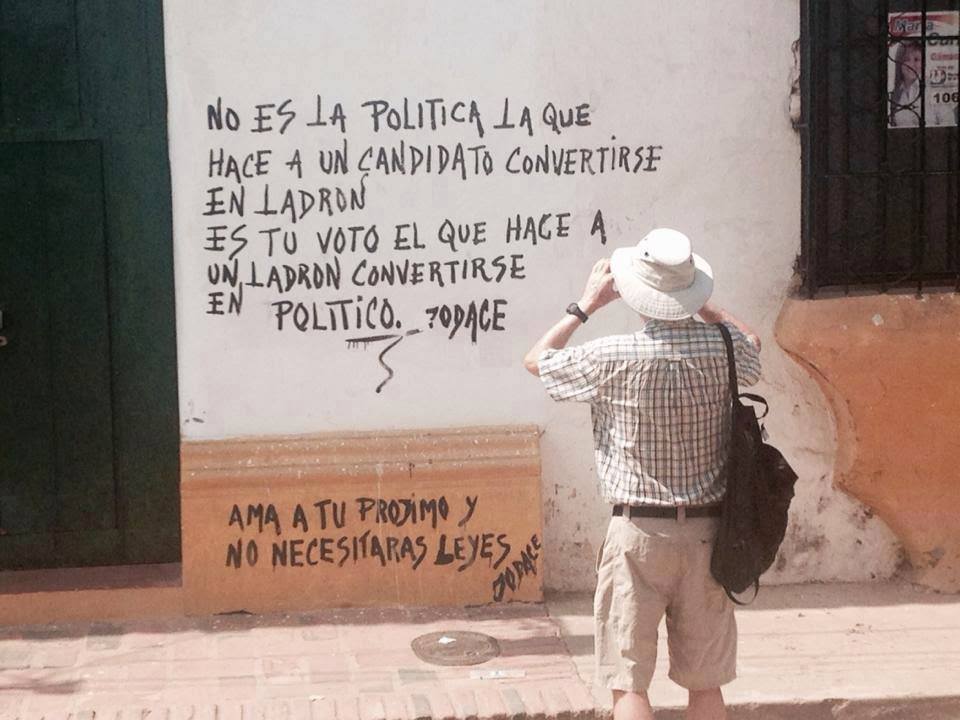 NO ES LA POLITICA LA QUE
HACE A UN CANDIDATO CONVERTIRSE
EN LADRON
ES TU VOTO EL QUE HACE A
UN LADRON CONVERTIRSE
EN POLITICO. JODACE
AMA A TU PROJIMO Y
NO NECESITARAS LEYES
JODACE
María
106